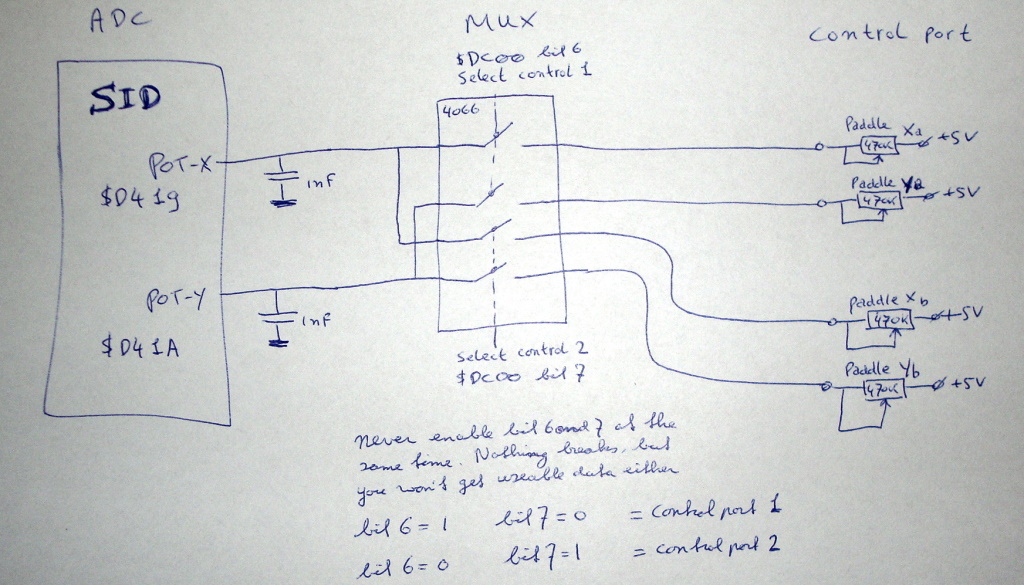 ADC
MUX
Control port
$DC00 bit 6
Select control 1
SID
4066
POT-X
$D419
1nF
Paddle Xa
470K
+5V
Paddle Ya
470K
+5V
POT-Y
$D41A
1nF
Paddle Xb
470K
+5V
Select control 2
$DC00 bit 7
Paddle Yb
470K
+5V
never enable bit 6 and 7 at the
same time. Nothing breaks, but
you won't get useable data either
bit 6 = 1 bit 7 = 0 = control port 1
bit 6 = 0 bit 7 = 1 = control port 2